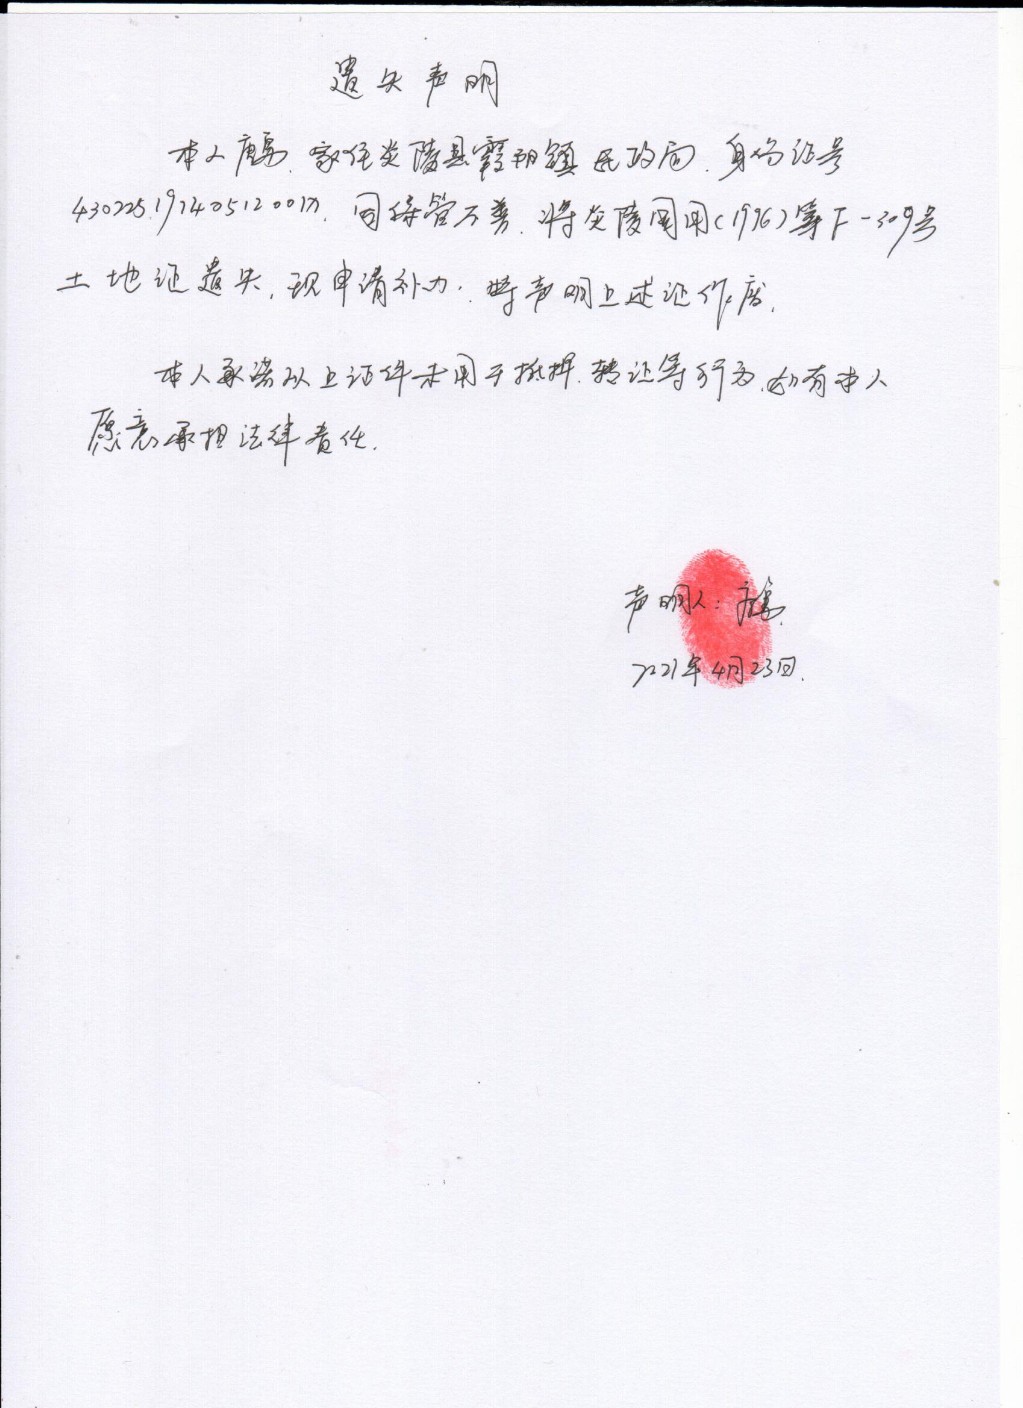 遗失声明
本人唐勇,家住炎陵县霞阳镇民政局,身份证号
430225197405120017,因保管不善,将炎陵国用(1996)第F-309号
土地证遗失,现申请补办,特声明上述证作废。
本人承诺以上证件未用于抵押、转让等行为,如有本人
愿意承担法律责任。
声明人:唐勇
2021年4月23日.